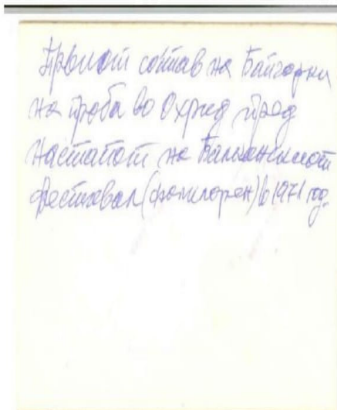 Првиот состав на Бајгорки
на проба во Охрид пред
настапот на Балканскиот
фестивал (фолклорен) в 1971 год.